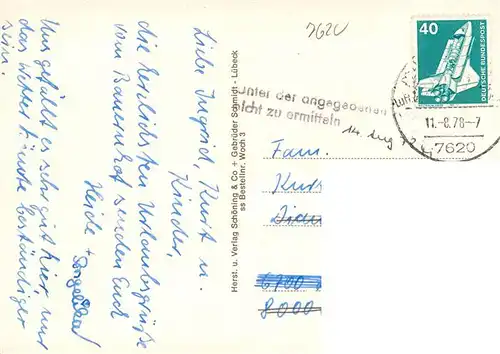 Liebe Ingrid, Kurt u.
Kinder,
die herzlichsten Urlaubsgrüße
vom Bauernhof senden Euch
Heide + Angelika
Uns gefällt es sehr gut hier, nur
das Wetter könnte beständiger
sein.
Herst. u. Verlag Schöning & Co + Gebrüder Schmidt - Lübeck
ss Bestellnr. Woch 3
7620
40
DEUTSCHE BUNDESPOST
Luft
11.-8.78-7
7620
Unter der angegebenen
nicht zu ermitteln
14. Aug
Fam.
Kurt
6700
8000